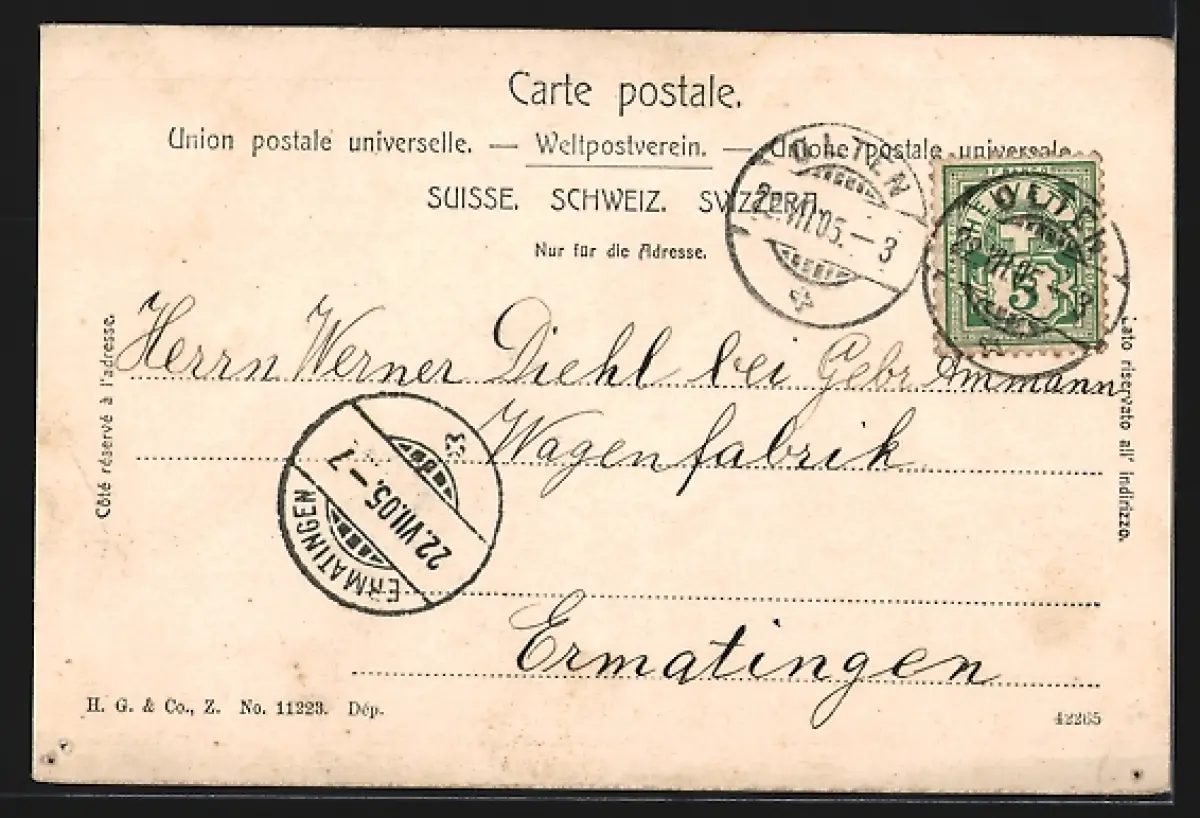 Carte postale.
Union postale universelle. — Weltpostverein. — Unione postale universale
SUISSE. SCHWEIZ. SVIZZERA.
Nur für die Adresse.
OLTEN
22.VII.05.–3
OLTEN
22.VII.05.–3
5
Côté réservé à l'adresse.
Lato riservato all' indirizzo.
Herrn Werner Diehl bei Gebr Ammann
Wagenfabrik
ERMATINGEN
22.VII.05.–7
Ermatingen
H. G. & Co., Z. No. 11223. Dép.
42265